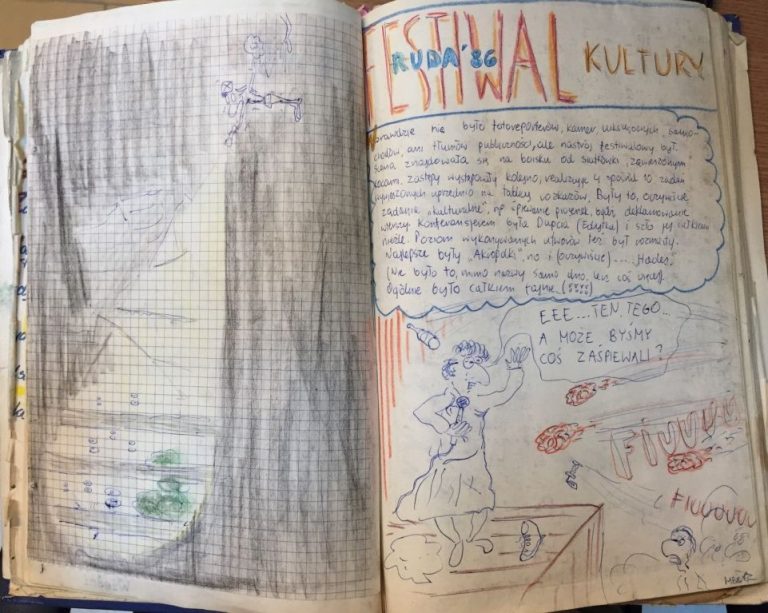 FESTIWAL
RUDA '86
KULTURY
Wprawdzie nie było fotoreporterów, kamer, luksusowych samo-
chodów, ani tłumów publiczności, ale nastrój festiwalowy był.
Scena znajdowała się na boisku od siatkówki,
kocami. Zastępy występowały kolejno, realizując 4 spośród 10 zadań
uprzednio na tablicy rozkazów. Były to, oczywiście,
zadania „kulturalne”, np śpiewanie piosenek, bądź deklamowanie
wierszy. Konferansjerem była Dupcia (Edytka) i szło jej całkiem
nieźle. Poziom wykonywanych utworów też był rozmaity.
Najlepsze były „Akropolki” no i (oczywiście) .... „Hades”
(Nie było to, mimo nazwy samo dno, lecz coś
Ogólnie było całkiem fajnie (!!!!)
EEE...TEN, TEGO...
A MOŻE BYŚMY
COŚ ZAŚPIEWALI?
FIUUUU
FIUUUUUU